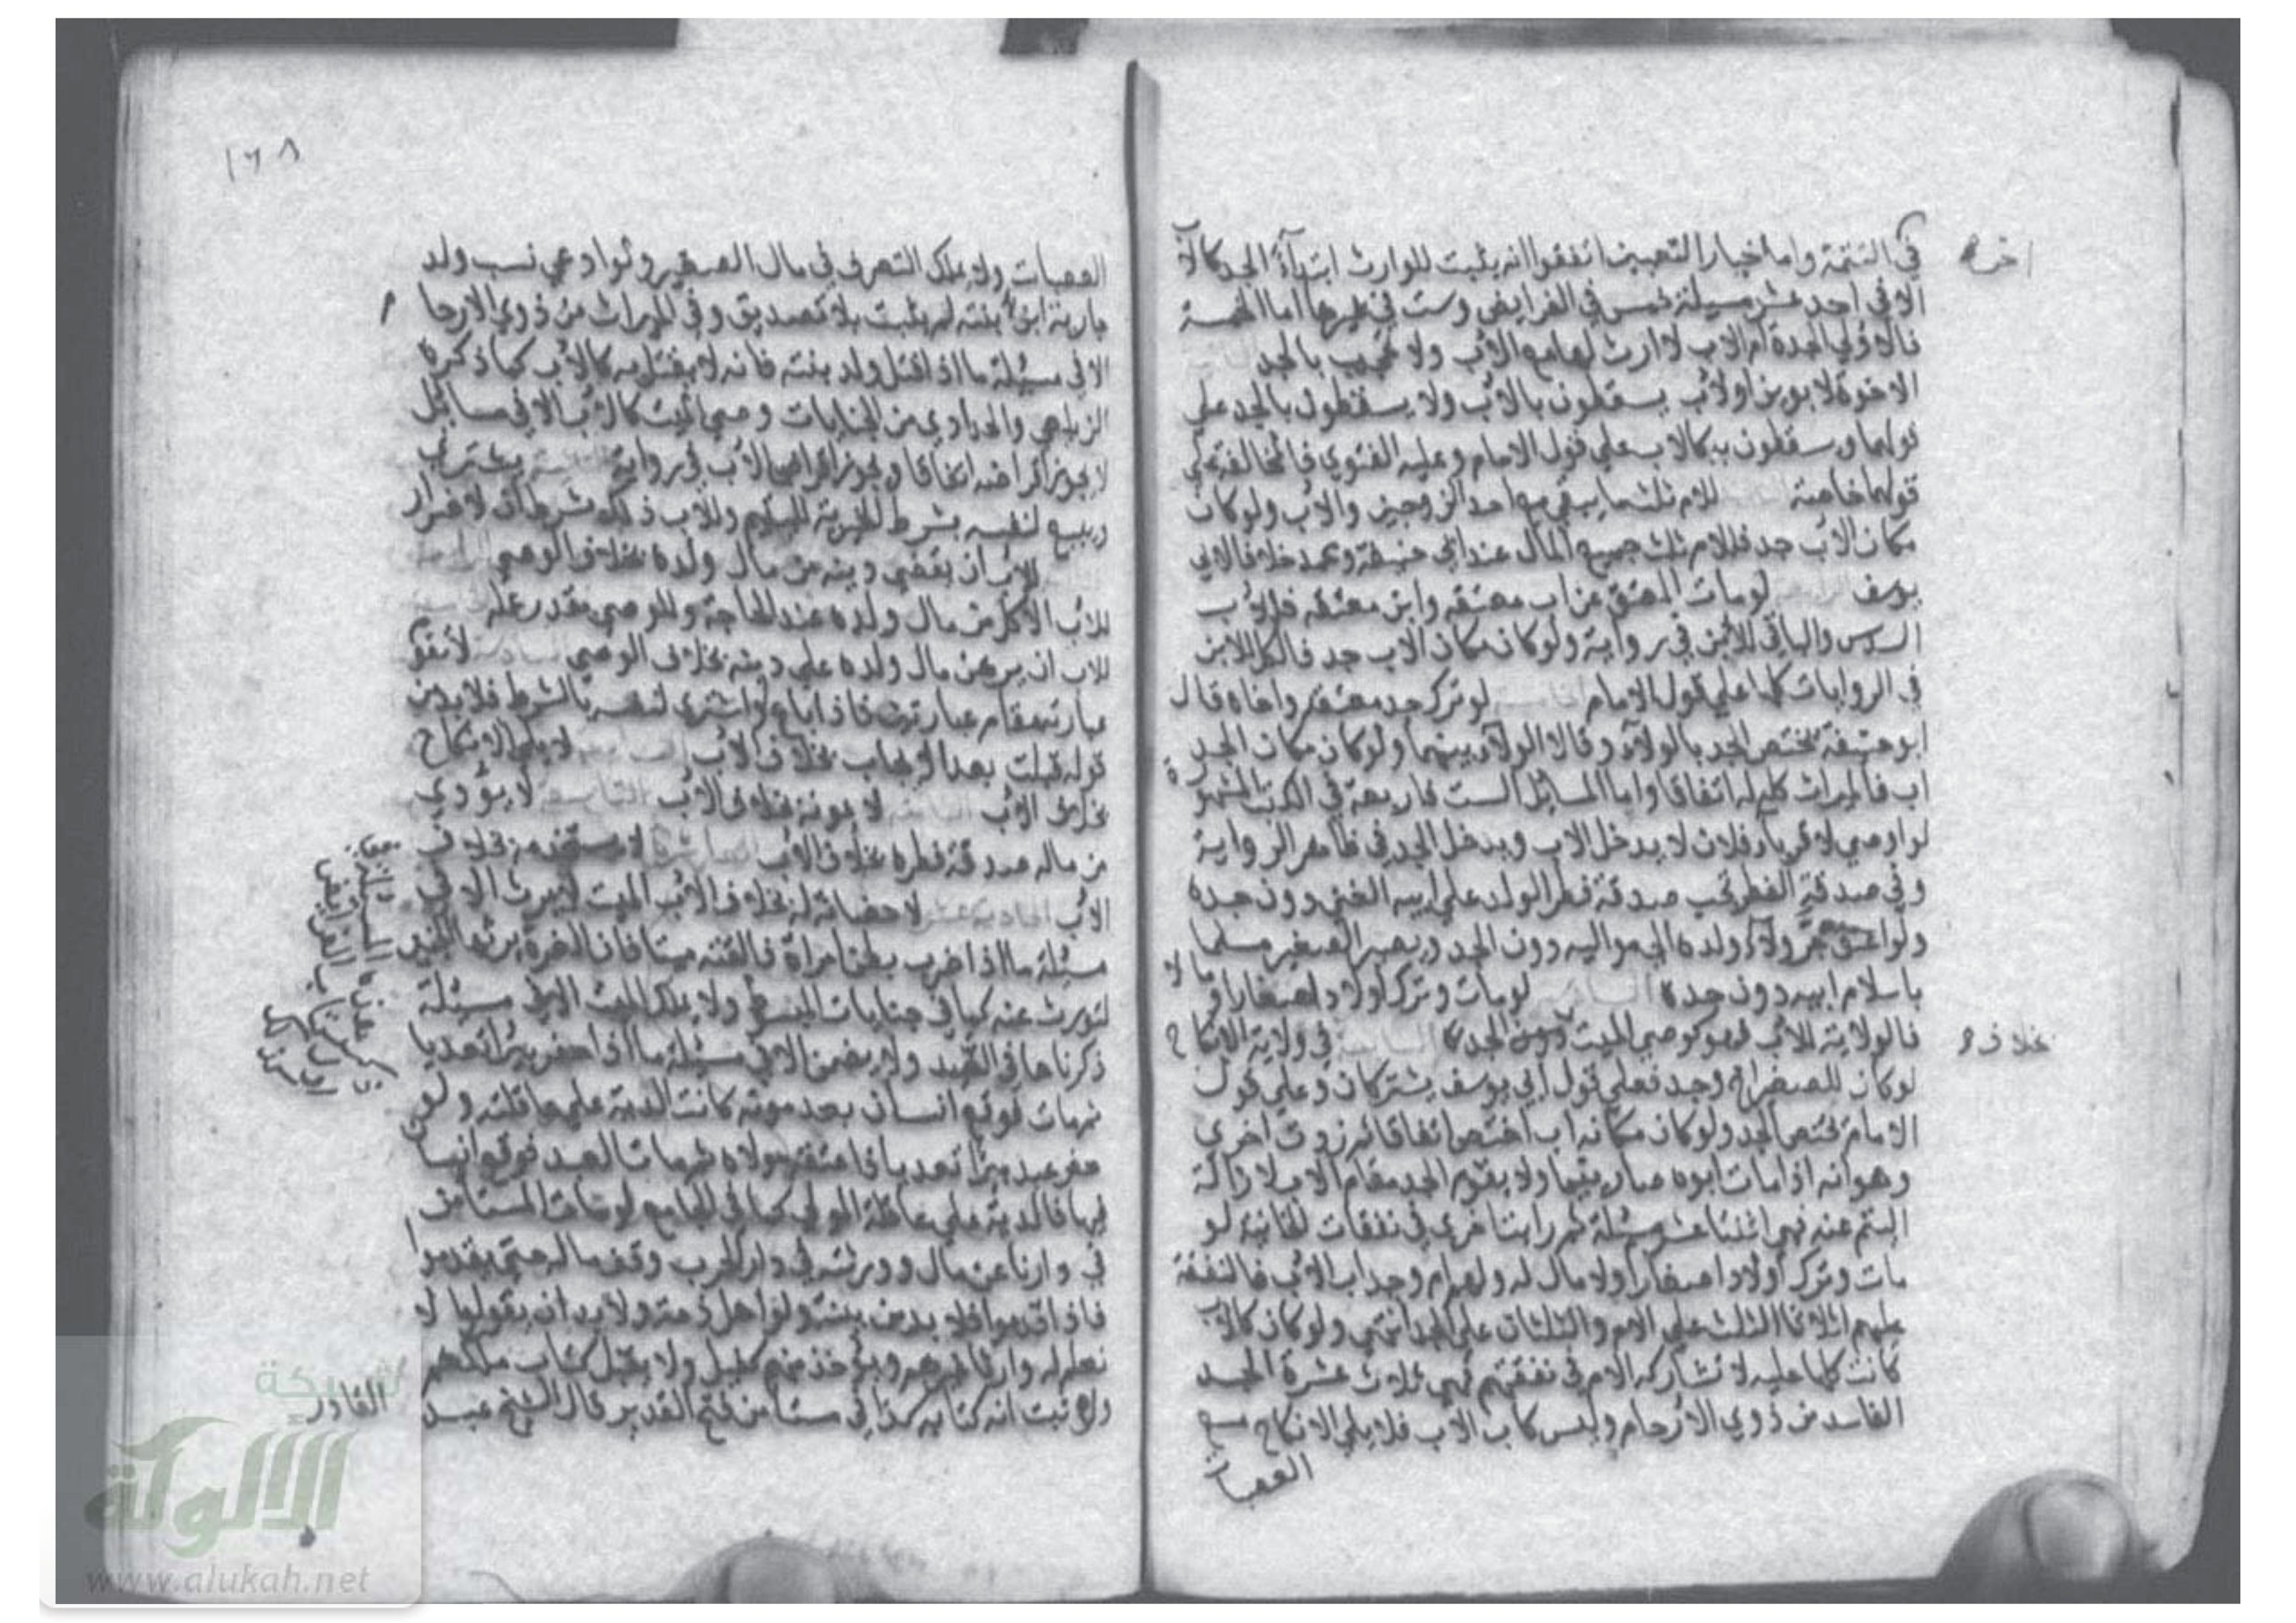 في التتمة واما خيار التعيين اتفقوا انه يثبت للوارث ابتدآءً الجد كالاب
اخره
الا في احد عشر مسيلة خمس في الفرايض وست في غيرها اما الخمسة
فالاولي الجدة ام الاب لا ارث لها مع الاب ولا تحجب بالجد
الاخوة لابوين او لاب يسقطون بالاب ولا يسقطون بالجد علي
قولهما ويسقطون به كالاب علي قول الامام وعليه الفتوي فالمخالفة علي
قولهما خاصة للام ثلث ما يبقي مع احد الزوجين والاب ولو كان
مكان الاب جد فللام ثلث جميع المال عند ابي حنيفة ومحمد خلافا لابي
يوسف لو مات المعتق عن اب معتقه وابن معتقه فللاب
السدس والباقي للابن في رواية ولو كان مكان الاب جد فالكل للابن
في الروايات كلها علي قول الامام لو ترك جد معتقه واخاه قال
ابو حنيفة يختص الجد بالولاء وقالا الولاء بينهما ولو كان مكان الجد
اب فالميراث كله له اتفاقا واما المسائل الست فاربعة في الكتب المشهورة
لو اوصي لاقرباء فلان لا يدخل الاب ويدخل الجد في ظاهر الرواية
وفي صدقة الفطر تجب صدقة فطر الولد علي ابيه الغني دون جده
ولو اعتق جر ولاء ولده الي مواليه دون الجد ويصير الصغير مسلما
باسلام ابيه دون جده لو مات وترك اولادا صغارا ومالا
فالولاية للاب فهو كوصي الميت الجد في ولاية الانكاح
خلاف
لو كان للصغير اخ وجد فعلي قول ابي يوسف يشتركان وعلي قول
الامام يختص الجد ولو كان مكانه اب اختص اتفاقا ثم زدت اخري
وهو انه اذا مات ابوه صار يتيما ولا يقوم الجد مقام الاب لازالة
اليتم عنه فهي اثنتا عشر مسئلة ثم رايت اخري في نفقات الخانية لو
مات وترك اولادا صغارا ولا مال له ولهم ام وجد اب الاب فالنفقة
عليهم اثلاثا الثلث علي الام والثلثان علي الجد انتهي ولو كان كالاب
كانت كلها عليه لا تشاركه الام في نفقتهم فهي ثلاث عشرة الجد
الفاسد من ذوي الارحام وليس كاب الاب فلا يلي الانكاح مع
العصبات
١٦٨
العصبات ولا يملك التصرف في مال الصغير ولو ادعي نسب ولد
جارية ابن بنته لم يثبت بلا تصديق وفي الميراث من ذوي الارحام
الا في مسئلة ما اذا قتل ولد بنته فانه لا يقتل به كالاب كما ذكره
الزيلعي والحدادي من الجنايات وصي الميت كالاب الا في مسائل
لا يجوز اقراضه اتفاقا ويجوز اقراض الاب في رواية يشتري
ويبيع لنفسه بشرط الخيرية لليتيم وللاب ذلك بشرط ان لا ضرار
للاب ان يقضي دينه من مال ولده بخلاف الوصي
للاب الاكل من مال ولده عند الحاجة وللوصي بقدر عمله
للاب ان يرهن مال ولده علي دينه بخلاف الوصي لا تقوم
عبارته مقام عبارتين فاذا باع او اشتري لنفسه بالشرط فلا بد من
قوله قبلت بعد الايجاب بخلاف الاب لا يلي الانكاح
بخلاف الاب لا يمونه بخلاف الاب التاسعة لا يؤدي
من ماله صدقة فطره بخلاف الاب لا يستخدمه بخلاف
الاب الحادية عشر لا حضانة له بخلاف الاب الميت لا يرث الا في
مسئلة ما اذا ضرب بطن امراة فالقته ميتا فان الغرة يرثها الجنين
لتورث عنه كما في جنايات المبسوط ولا يملك الميت الا في مسئلة
ذكرناها في الصيد ولا يضمن الا في مسئلة ما اذا حفر بيرا تعديا
ثم مات فوقع انسان بعد موته كانت الدية علي عاقلته ولو
حفر عبد بيرا تعديا فاعتقه مولاه ثم مات العبد فوقع انسان
فيها فالدية علي عاقلة المولي كما في الجامع لو مات المستامن
في دارنا عن مال وورثته في دار الحرب وقف ماله حتي يقدموا
فاذا قدموا فلا بد من بينة ولو اهل ذمة ولا بد ان يقولوا لا
نعلم له وارثا غيرهم ويؤخذ منهم كفيل ولا يقبل كتاب ملكهم
ولو ثبت انه كتابه كذا في مستامن فتح القدير قال الشيخ عبد
القادر
شبكة
الألوكة
www.alukah.net